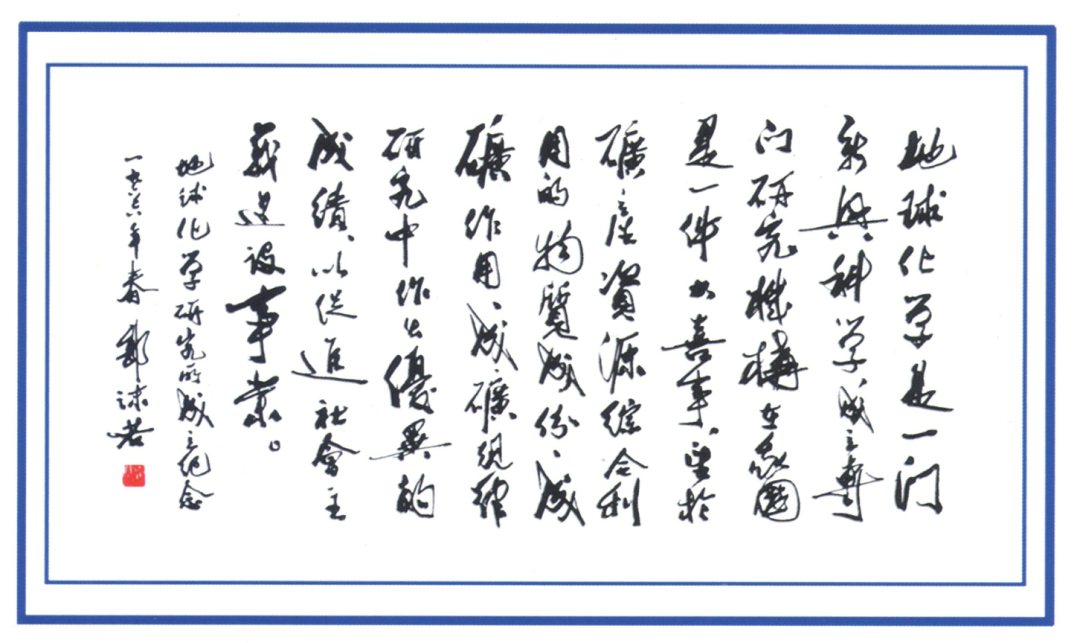 地球化学是一门
新興科学成立專
门研究機構在我國
是一件大喜事，望於
礦産資源綜合利
用的物質成份、成
礦作用、成礦規律
研究中作出優異的
成績、以促進社會主
義建設事業。
地球化学研究所成立纪念
一九六六年春 郭沫若